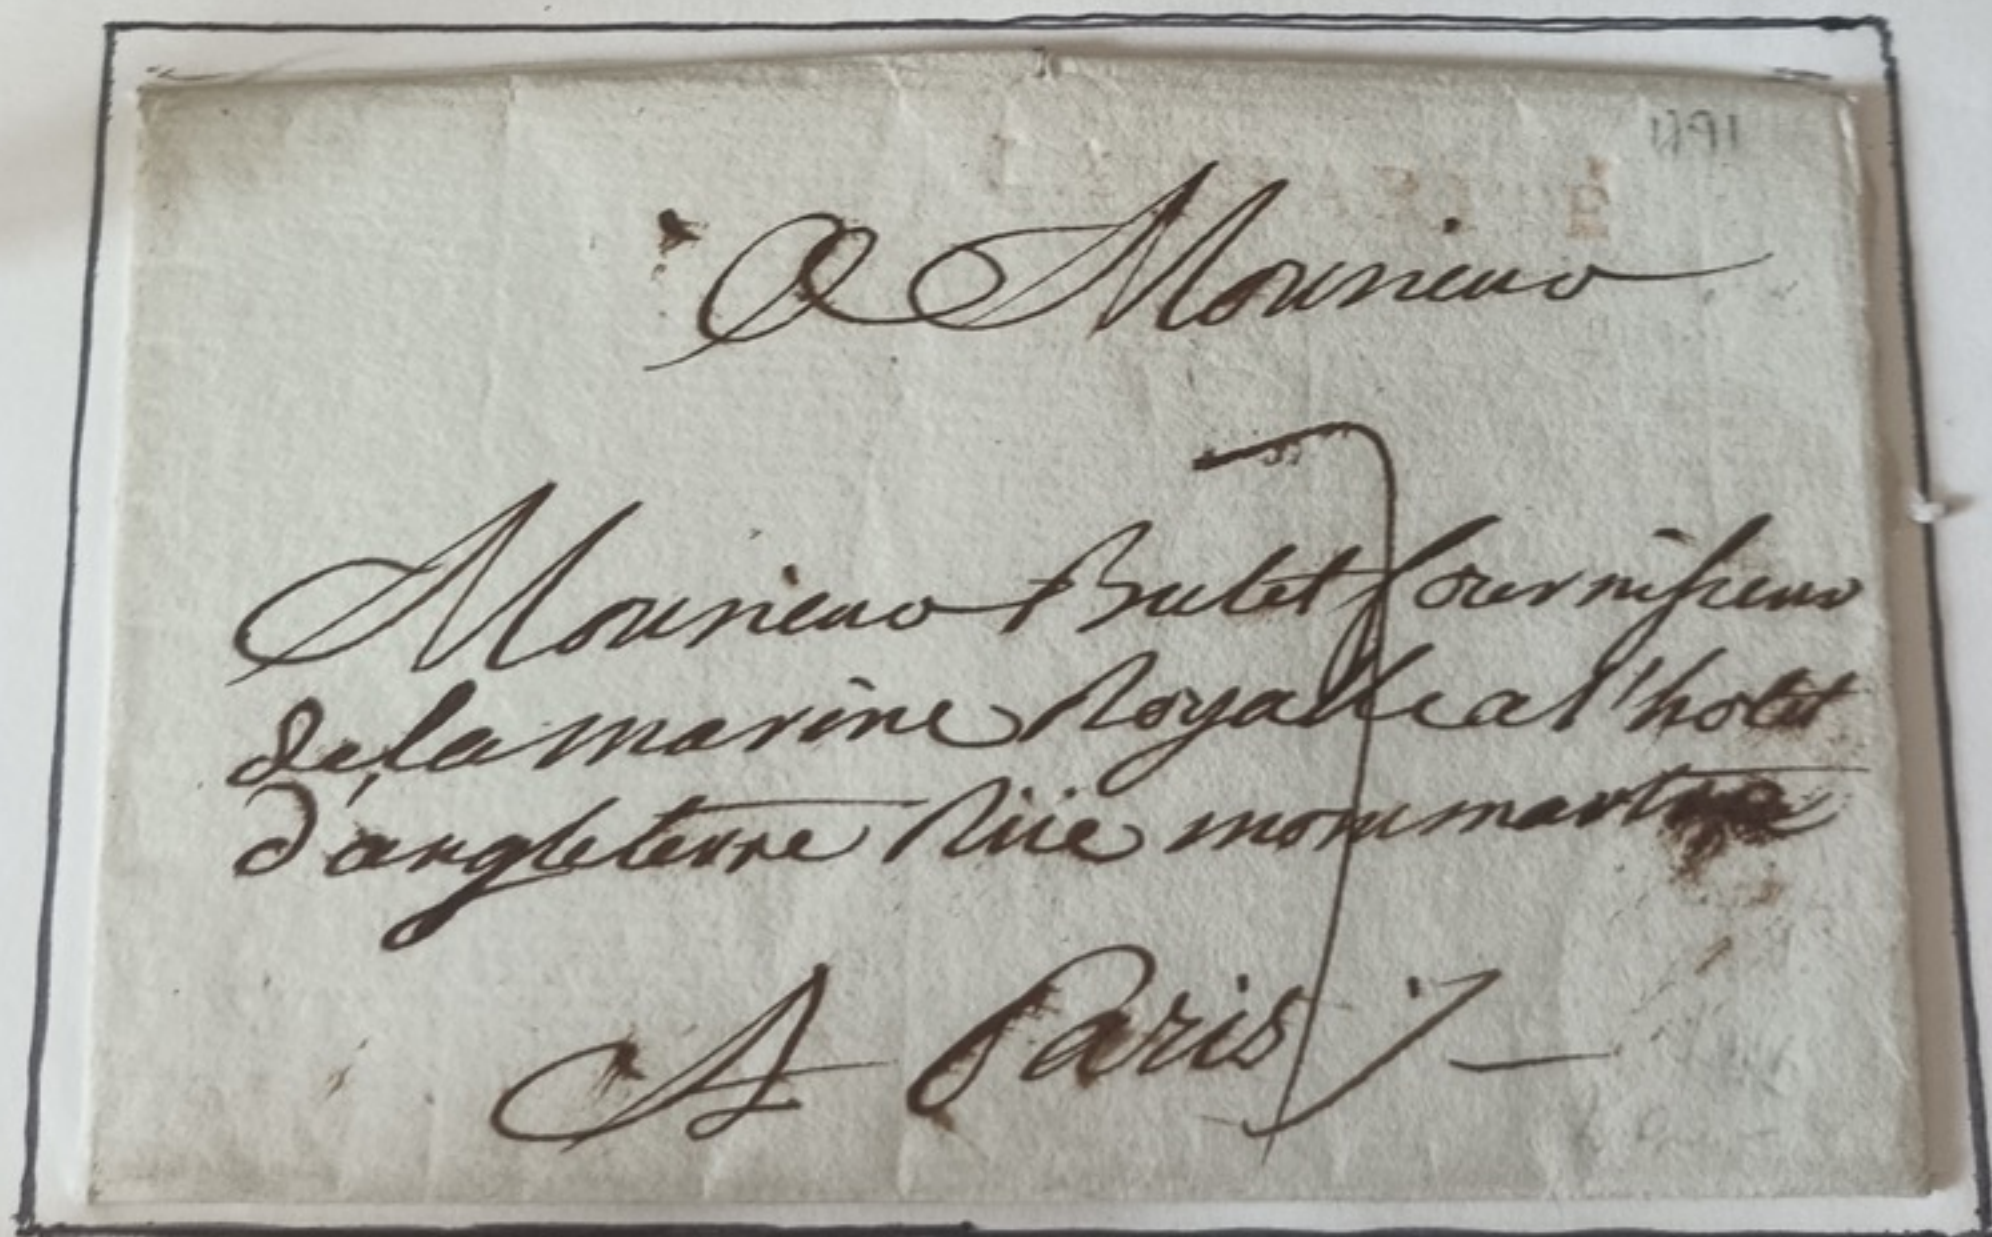 1791
A Monsieur
7
Monsieur Butet fournisseur
de la marine Royalle a l'hotel
d'angleterre Rüe mommartre
A Paris